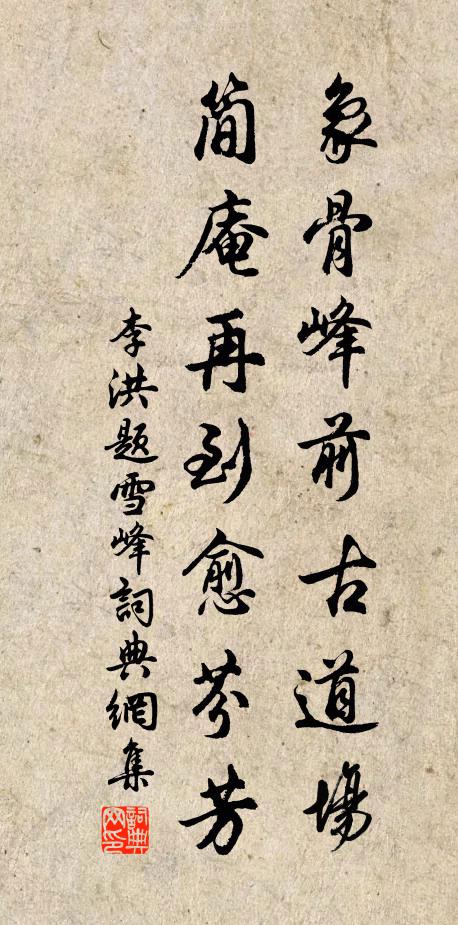 象骨峰前古道場
簡庵再到愈芬芳
李洪題雪峰詞典網集
詞典網印